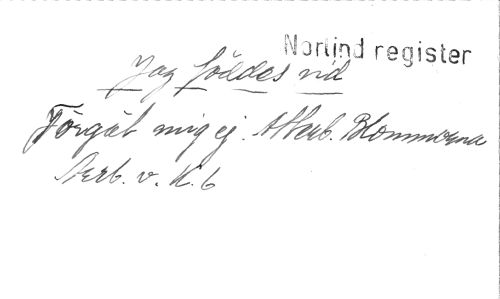 Norlind register
Jag föddes vid
Förgät mig ej. Atterb. Blommorna
Aterb. v. K. 6